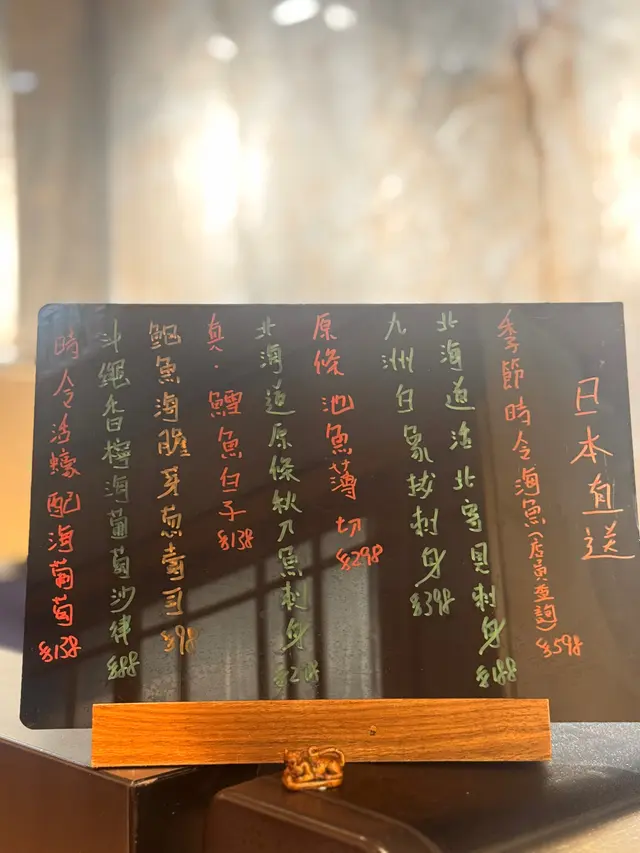 日本直送
季節時令海魚(店員查詢) $598
北海道活北寄貝刺身 $188
九洲白象拔刺身 $398
原條池魚薄切 $298
北海道原條秋刀魚刺身
真·鱈魚白子 $138
鮑魚海膽芽葱壽司 $98
沖繩香檸海葡萄沙律 $88
時令活蠔配海葡萄 $138